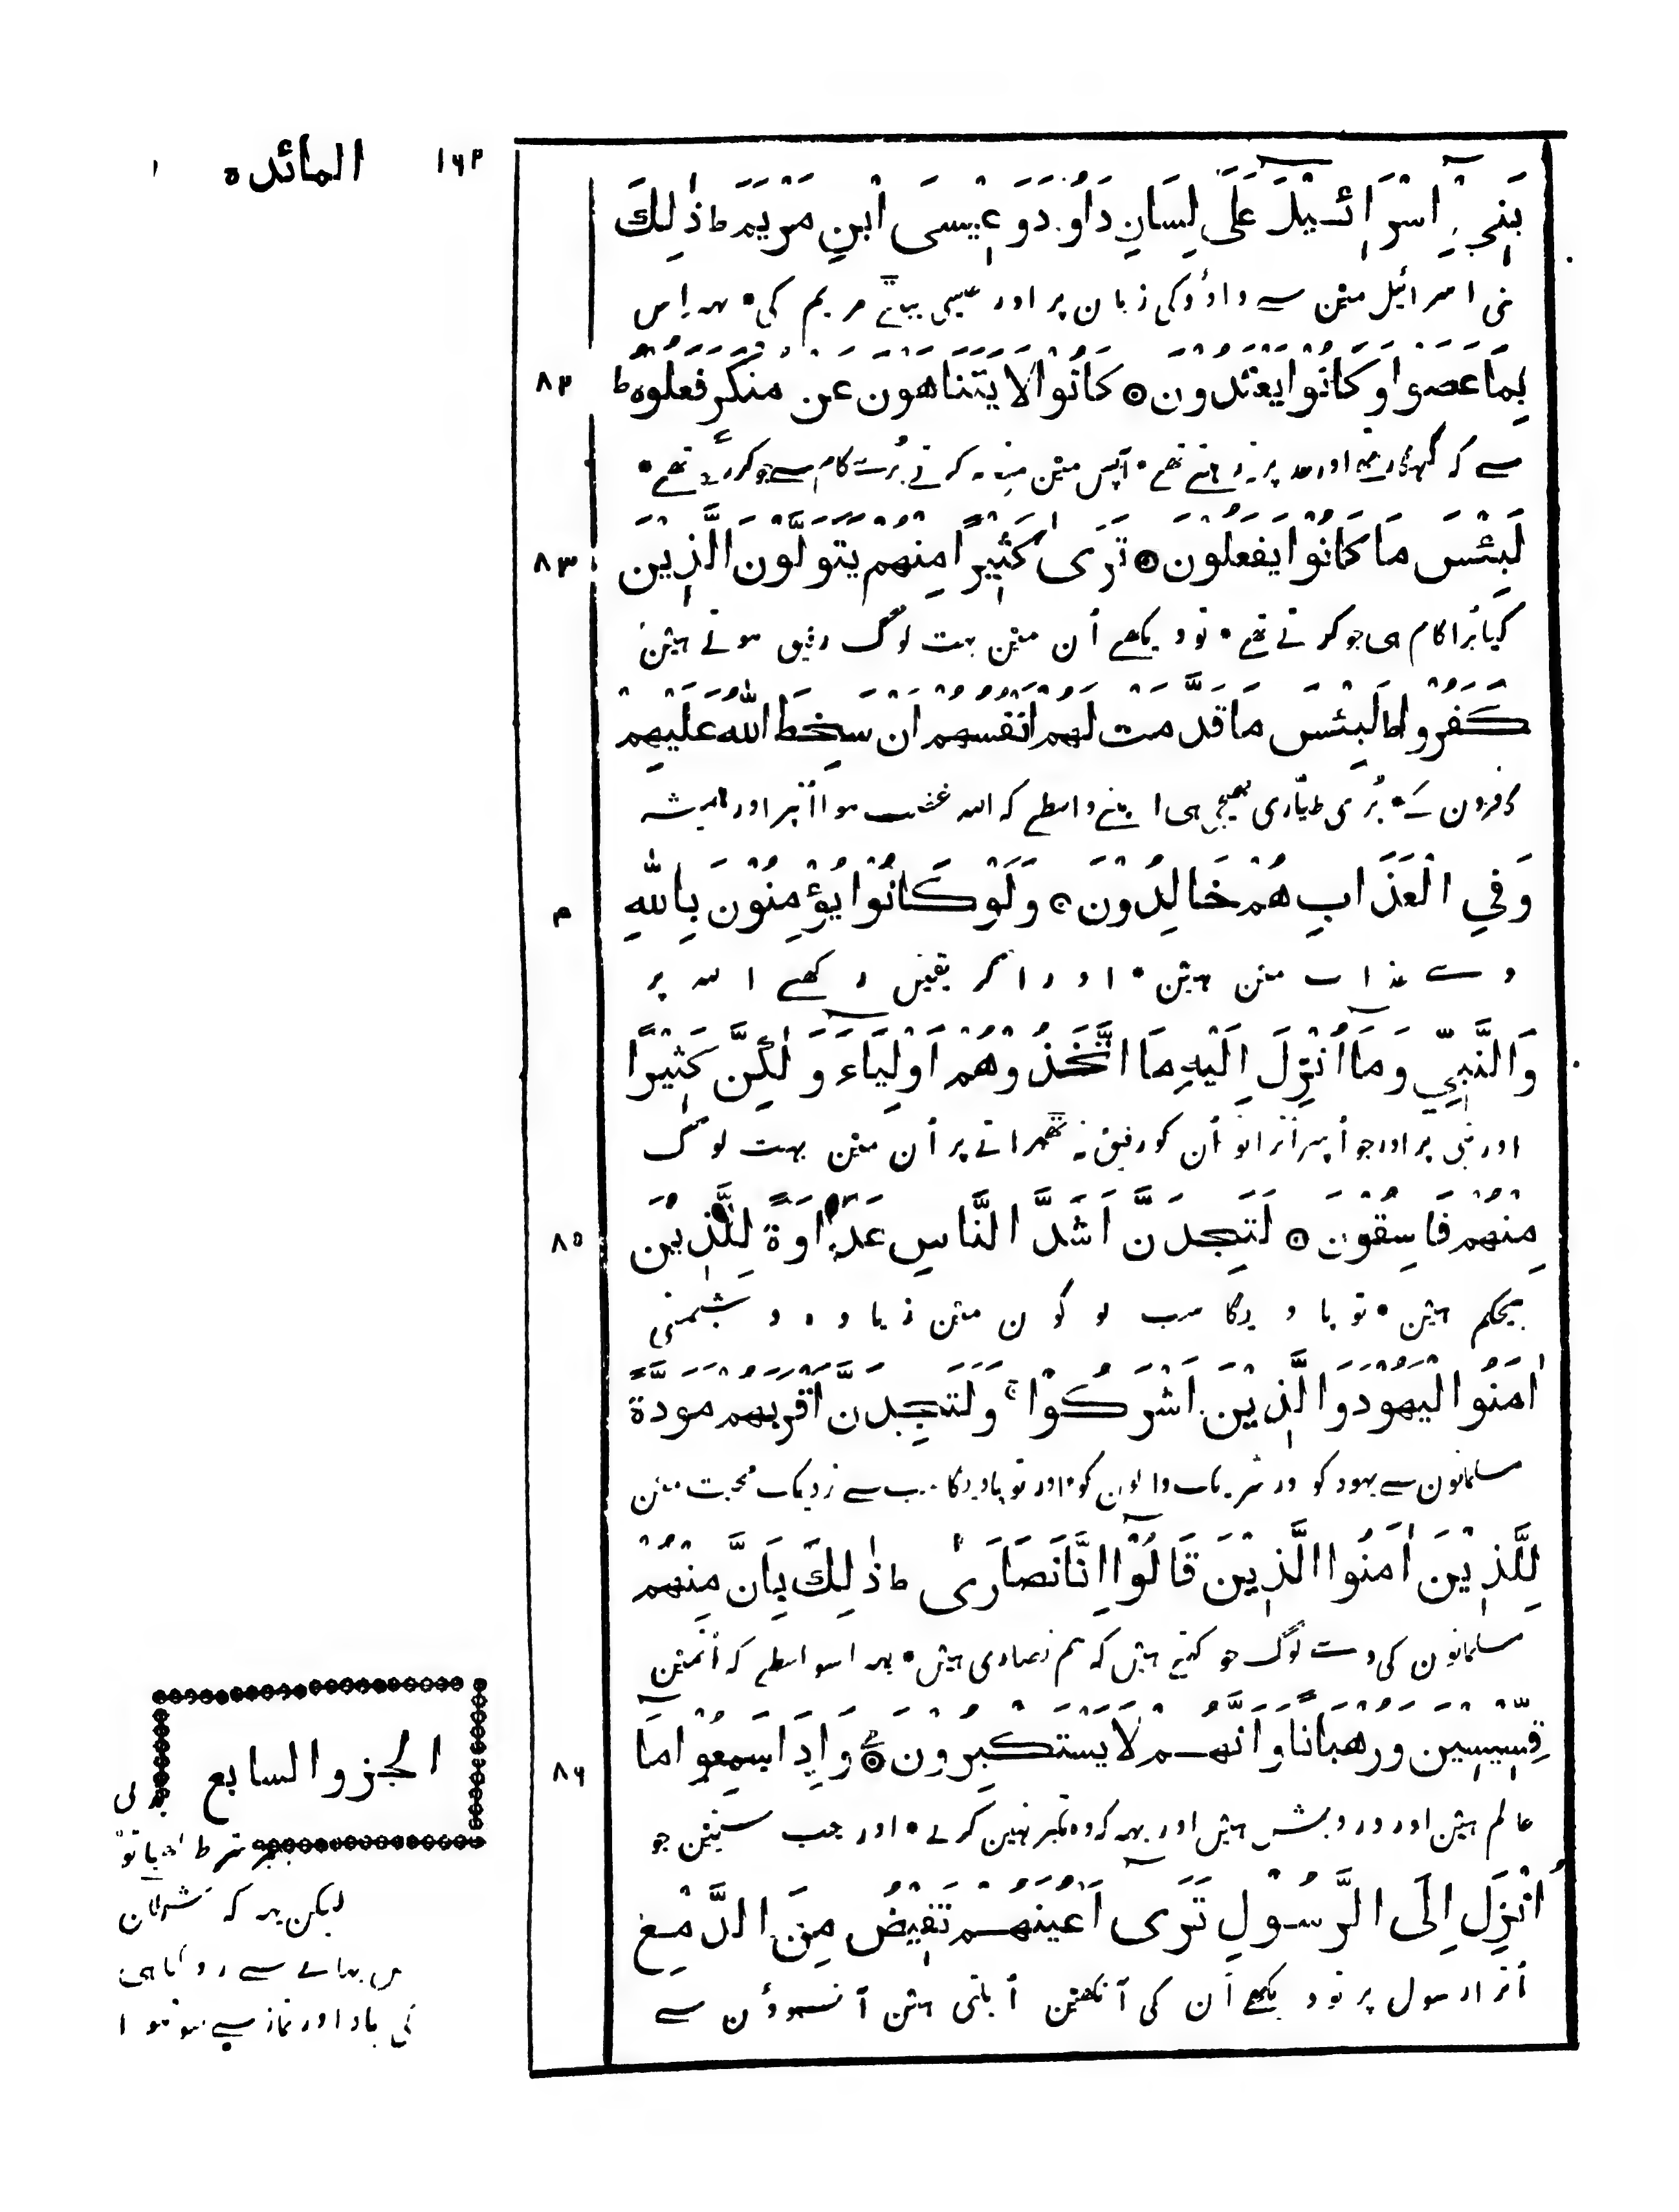 المائدہ ۱۶۲
بَنِيْٓ اِسْرَآئِيْلَ عَلٰى لِسَانِ دَاوٗدَ وَعِيْسَى ابْنِ مَرْيَمَ ط ذٰلِكَ
بنی اسرائیل مین سے داؤد کی زبان پر اور عیسی بیٹے مریم کی • یہہ اِس
بِمَا عَصَوْا وَكَانُوْا يَعْتَدُوْنَ ۞ كَانُوْا لَا يَتَنَاهَوْنَ عَنْ مُنْكَرٍ فَعَلُوْهُ ط ۸۲
سے کہ گنہگار تھے اور حد پر نہ رہتے تھے • آپس مین منع نہ کرتے بُرے کام سے جو کر رہے تھے •
لَبِئْسَ مَا كَانُوْا يَفْعَلُوْنَ ۞ تَرٰى كَثِيْرًا مِنْهُمْ يَتَوَلَّوْنَ الَّذِيْنَ ۸۳
کیا بُرا کام ہی جو کرتے تھے • تو دیکھے اُن مین بہت لوگ رفیق ہوتے ہین
كَفَرُوْا ط لَبِئْسَ مَا قَدَّمَتْ لَهُمْ اَنْفُسُهُمْ اَنْ سَخِطَ اللهُ عَلَيْهِمْ
کافرون کے • بُری طیّاری بھیجی ہی اپنے واسطے کہ اللہ غضب ہوا اُنپر اور ہمیشہ
وَفِي الْعَذَابِ هُمْ خَالِدُوْنَ ۞ وَلَوْ كَانُوْا يُؤْمِنُوْنَ بِاللّٰهِ
وے عذاب مین ہین • اور اگر یقین رکھتے اللہ پر
وَالنَّبِيِّ وَمَآ اُنْزِلَ اِلَيْهِ مَا اتَّخَذُوْهُمْ اَوْلِيَآءَ وَلٰكِنَّ كَثِيْرًا
اور نبی پر اور جو اُسپر اُترا تو اُن کو رفیق نہ ٹھہراتے پر اُن مین بہت لوگ
مِنْهُمْ فَاسِقُوْنَ ۞ لَتَجِدَنَّ اَشَدَّ النَّاسِ عَدَاوَةً لِلَّذِيْنَ ۸۵
بیحکم ہین • تو پاویگا سب لوگون مین زیادہ دشمنی
اٰمَنُوا الْيَهُوْدَ وَالَّذِيْنَ اَشْرَكُوْا ج وَلَتَجِدَنَّ اَقْرَبَهُمْ مَوَدَّةً
مسلمانون سے یہود کو اور شریک والون کو • اور تو پاویگا سب سے نزدیک محبت مین
لِلَّذِيْنَ اٰمَنُوا الَّذِيْنَ قَالُوْٓا اِنَّا نَصَارٰى ط ذٰلِكَ بِاَنَّ مِنْهُمْ
مسلمانون کی وے لوگ جو کہتے ہین کہ ہم نصاری ہین • یہہ اسواسطے کہ اُنمین
قِسِّيْسِيْنَ وَرُهْبَانًا وَاَنَّهُمْ لَا يَسْتَكْبِرُوْنَ ۞ وَاِذَا سَمِعُوْا مَآ ۸۶
عالم ہین اور درویش ہین اور یہہ کہ وہ تکبر نہین کرتے • اور جب سنین جو
اُنْزِلَ اِلَى الرَّسُوْلِ تَرٰى اَعْيُنَهُمْ تَفِيْضُ مِنَ الدَّمْعِ
اُترا رسول پر تو دیکھے اُن کی آنکھین اُبلتی ہین آنسوؤن سے
الجزو السابع
لیکن یہہ کہ شیطان